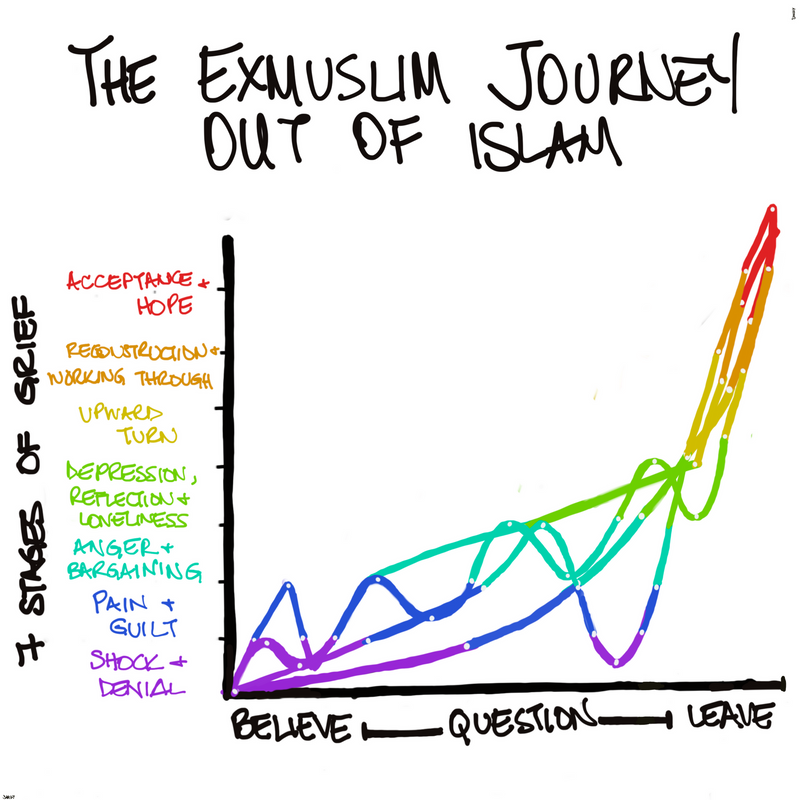 THE EXMUSLIM JOURNEY
OUT OF ISLAM
7 STAGES OF GRIEF
ACCEPTANCE +
HOPE
RECONSTRUCTION +
WORKING THROUGH
UPWARD
TURN
DEPRESSION,
REFLECTION +
LONELINESS
ANGER +
BARGAINING
PAIN +
GUILT
SHOCK +
DENIAL
BELIEVE QUESTION LEAVE